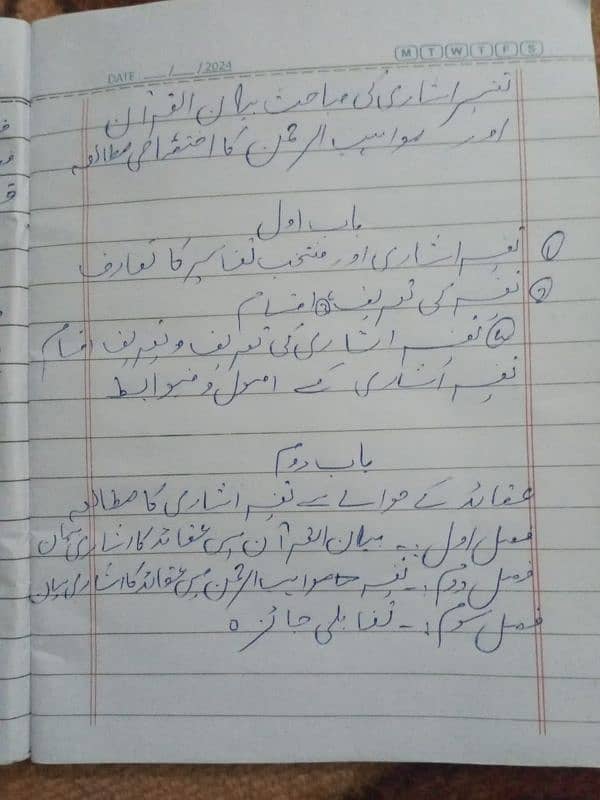 M T W T F S
DATE ___/___/2024
تفسیر اشاری کی مباحث بیان القرآن
اور مواہب الرحمن کا اختصاصی مطالعہ
باب اول
① تفسیر اشاری اور منتخب تفاسیر کا تعارف
② تفسیر کی تعریف ③ اقسام
④ تفسیر اشاری کی تعریف و تعریف اقسام
تفسیر اشاری کے اصول و ضوابط
باب دوم
عقائد کے حوالے سے تفسیر اشاری کا مطالعہ
فصل اول :۔ بیان القرآن میں عقائد کا اشاری بیان
فصل دوم :۔ تفسیر مواہب الرحمن میں عقائد کا اشاری بیان
فصل سوم :۔ تقابلی جائزہ